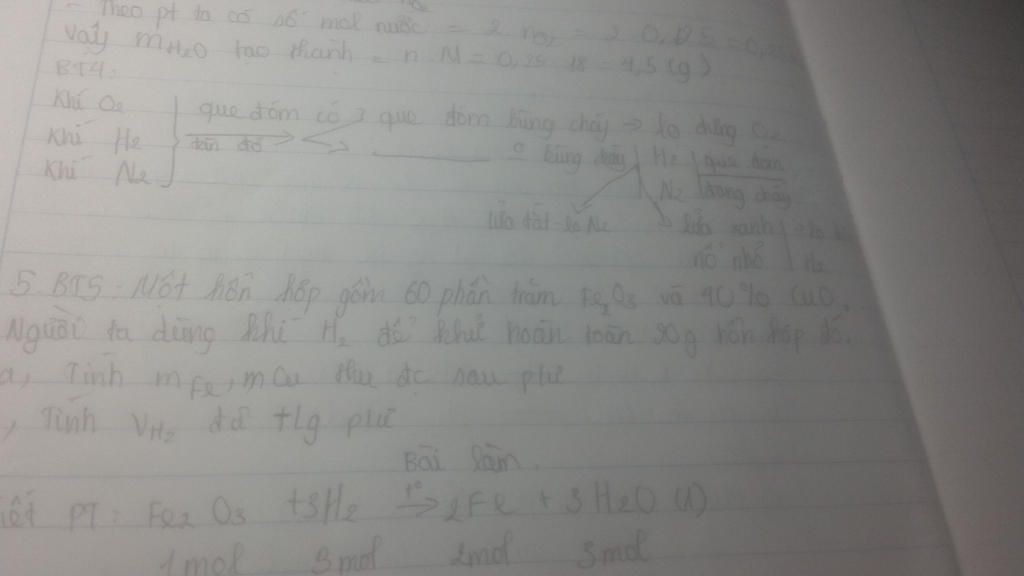 - Theo pt ta có số mol nước = 2 nO2 = 2. 0,125 = 0,25
vậy mH2O tạo thành = n. M = 0,25. 18 = 4,5 (g)
BT4:
Khí O2
Khí H2
Khí N2
que đóm có
tàn đỏ
que đóm bùng cháy → lọ đựng O2
bùng cháy
H2
N2
que đóm
đang cháy
lửa tắt - lọ N2
lửa xanh
nổ nhỏ
H2
5 BT5: Một hỗn hợp gồm 60 phần trăm Fe2O3 và 40% CuO.
Người ta dùng khí H2 để khử hoàn toàn 20g hỗn hợp đó.
a, Tính mFe, mCu thu đc sau pứ
, Tính VH2 đã t/g pứ
Bài làm.
iết PT: Fe2O3 + 3H2 t° → 2Fe + 3H2O (1)
1mol 3mol 2mol 3mol